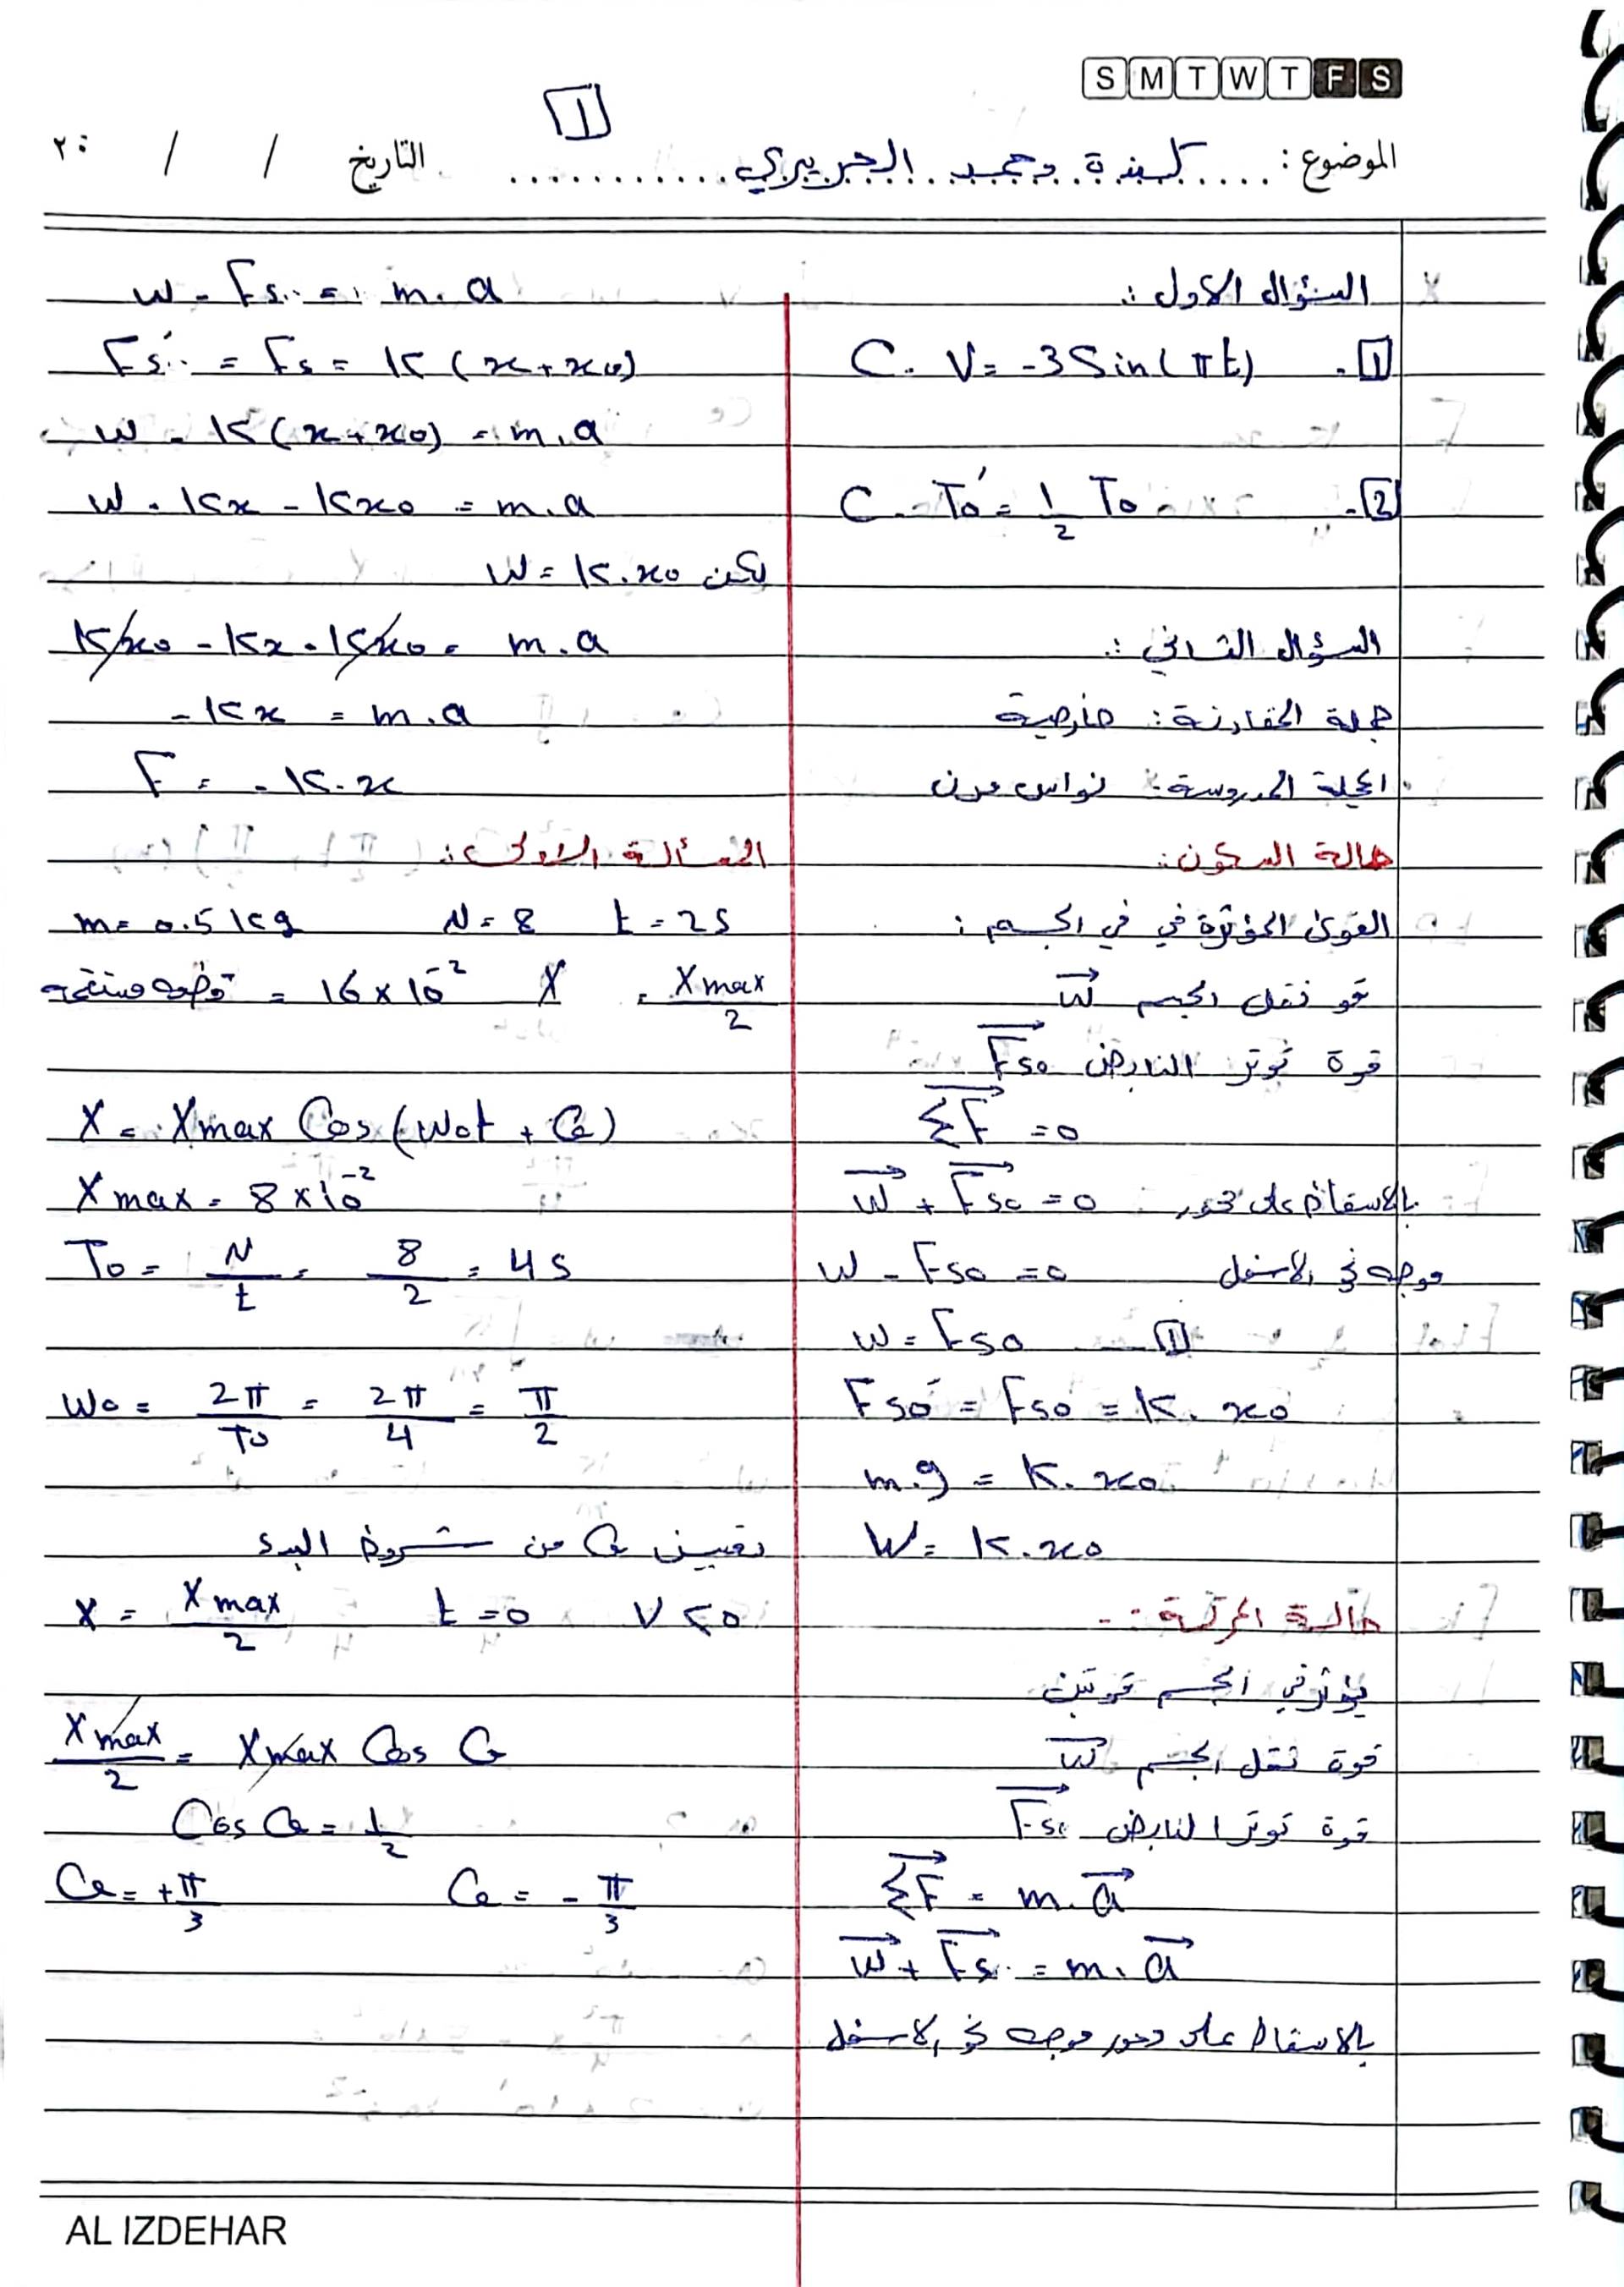 S M T W T F S
1
الموضوع: كنزة محمد الحريري التاريخ / / ٢٠
السؤال الاول:
1 - C. V = -3 Sin(πt)
2 - C - T₀' = 1/2 T₀
السؤال الثاني:
جملة المقارنة: خارجية
الجملة المدروسة: نواس مرن
حالة السكون:
القوى المؤثرة في في الجسم:
قو ثقل الجسم W⃗
قوة توتر النابض F⃗s₀
ΣF⃗ = 0
W⃗ + F⃗s₀ = 0 بالاسقاط على محور
موجه نحو الاسفل W - Fs₀ = 0
W = Fs₀ — 1
Fs₀' = Fs₀ = K. x₀
m.g = K. x₀
W = K. x₀
حالة الحركة:-
يؤثر في الجسم قوتين
قوة ثقل الجسم W⃗
قوة توتر النابض F⃗s
ΣF⃗ = m. a⃗
W⃗ + F⃗s = m. a⃗
بالاسقاط على محور موجه نحو الاسفل
W - Fs = m. a
Fs' = Fs = K (x + x₀)
W - K (x + x₀) = m. a
W - Kx - Kx₀ = m. a
لكن W = K. x₀
Kx₀ - Kx - Kx₀ = m. a
- Kx = m. a
F = - K. x
المسألة الاولى:
m = 0.5 kg N = 8 t = 2s
= 16 × 10⁻² X = Xmax/2
X = Xmax Cos (ω₀t + φ)
Xmax = 8 × 10⁻²
T₀ = N/t = 8/2 = 4s
ω₀ = 2π/T₀ = 2π/4 = π/2
تعيين φ من شروط البدء
X = Xmax/2 t = 0 V < 0
Xmax/2 = Xmax Cos φ
Cos φ = 1/2
φ = + π/3 φ = - π/3
AL IZDEHAR